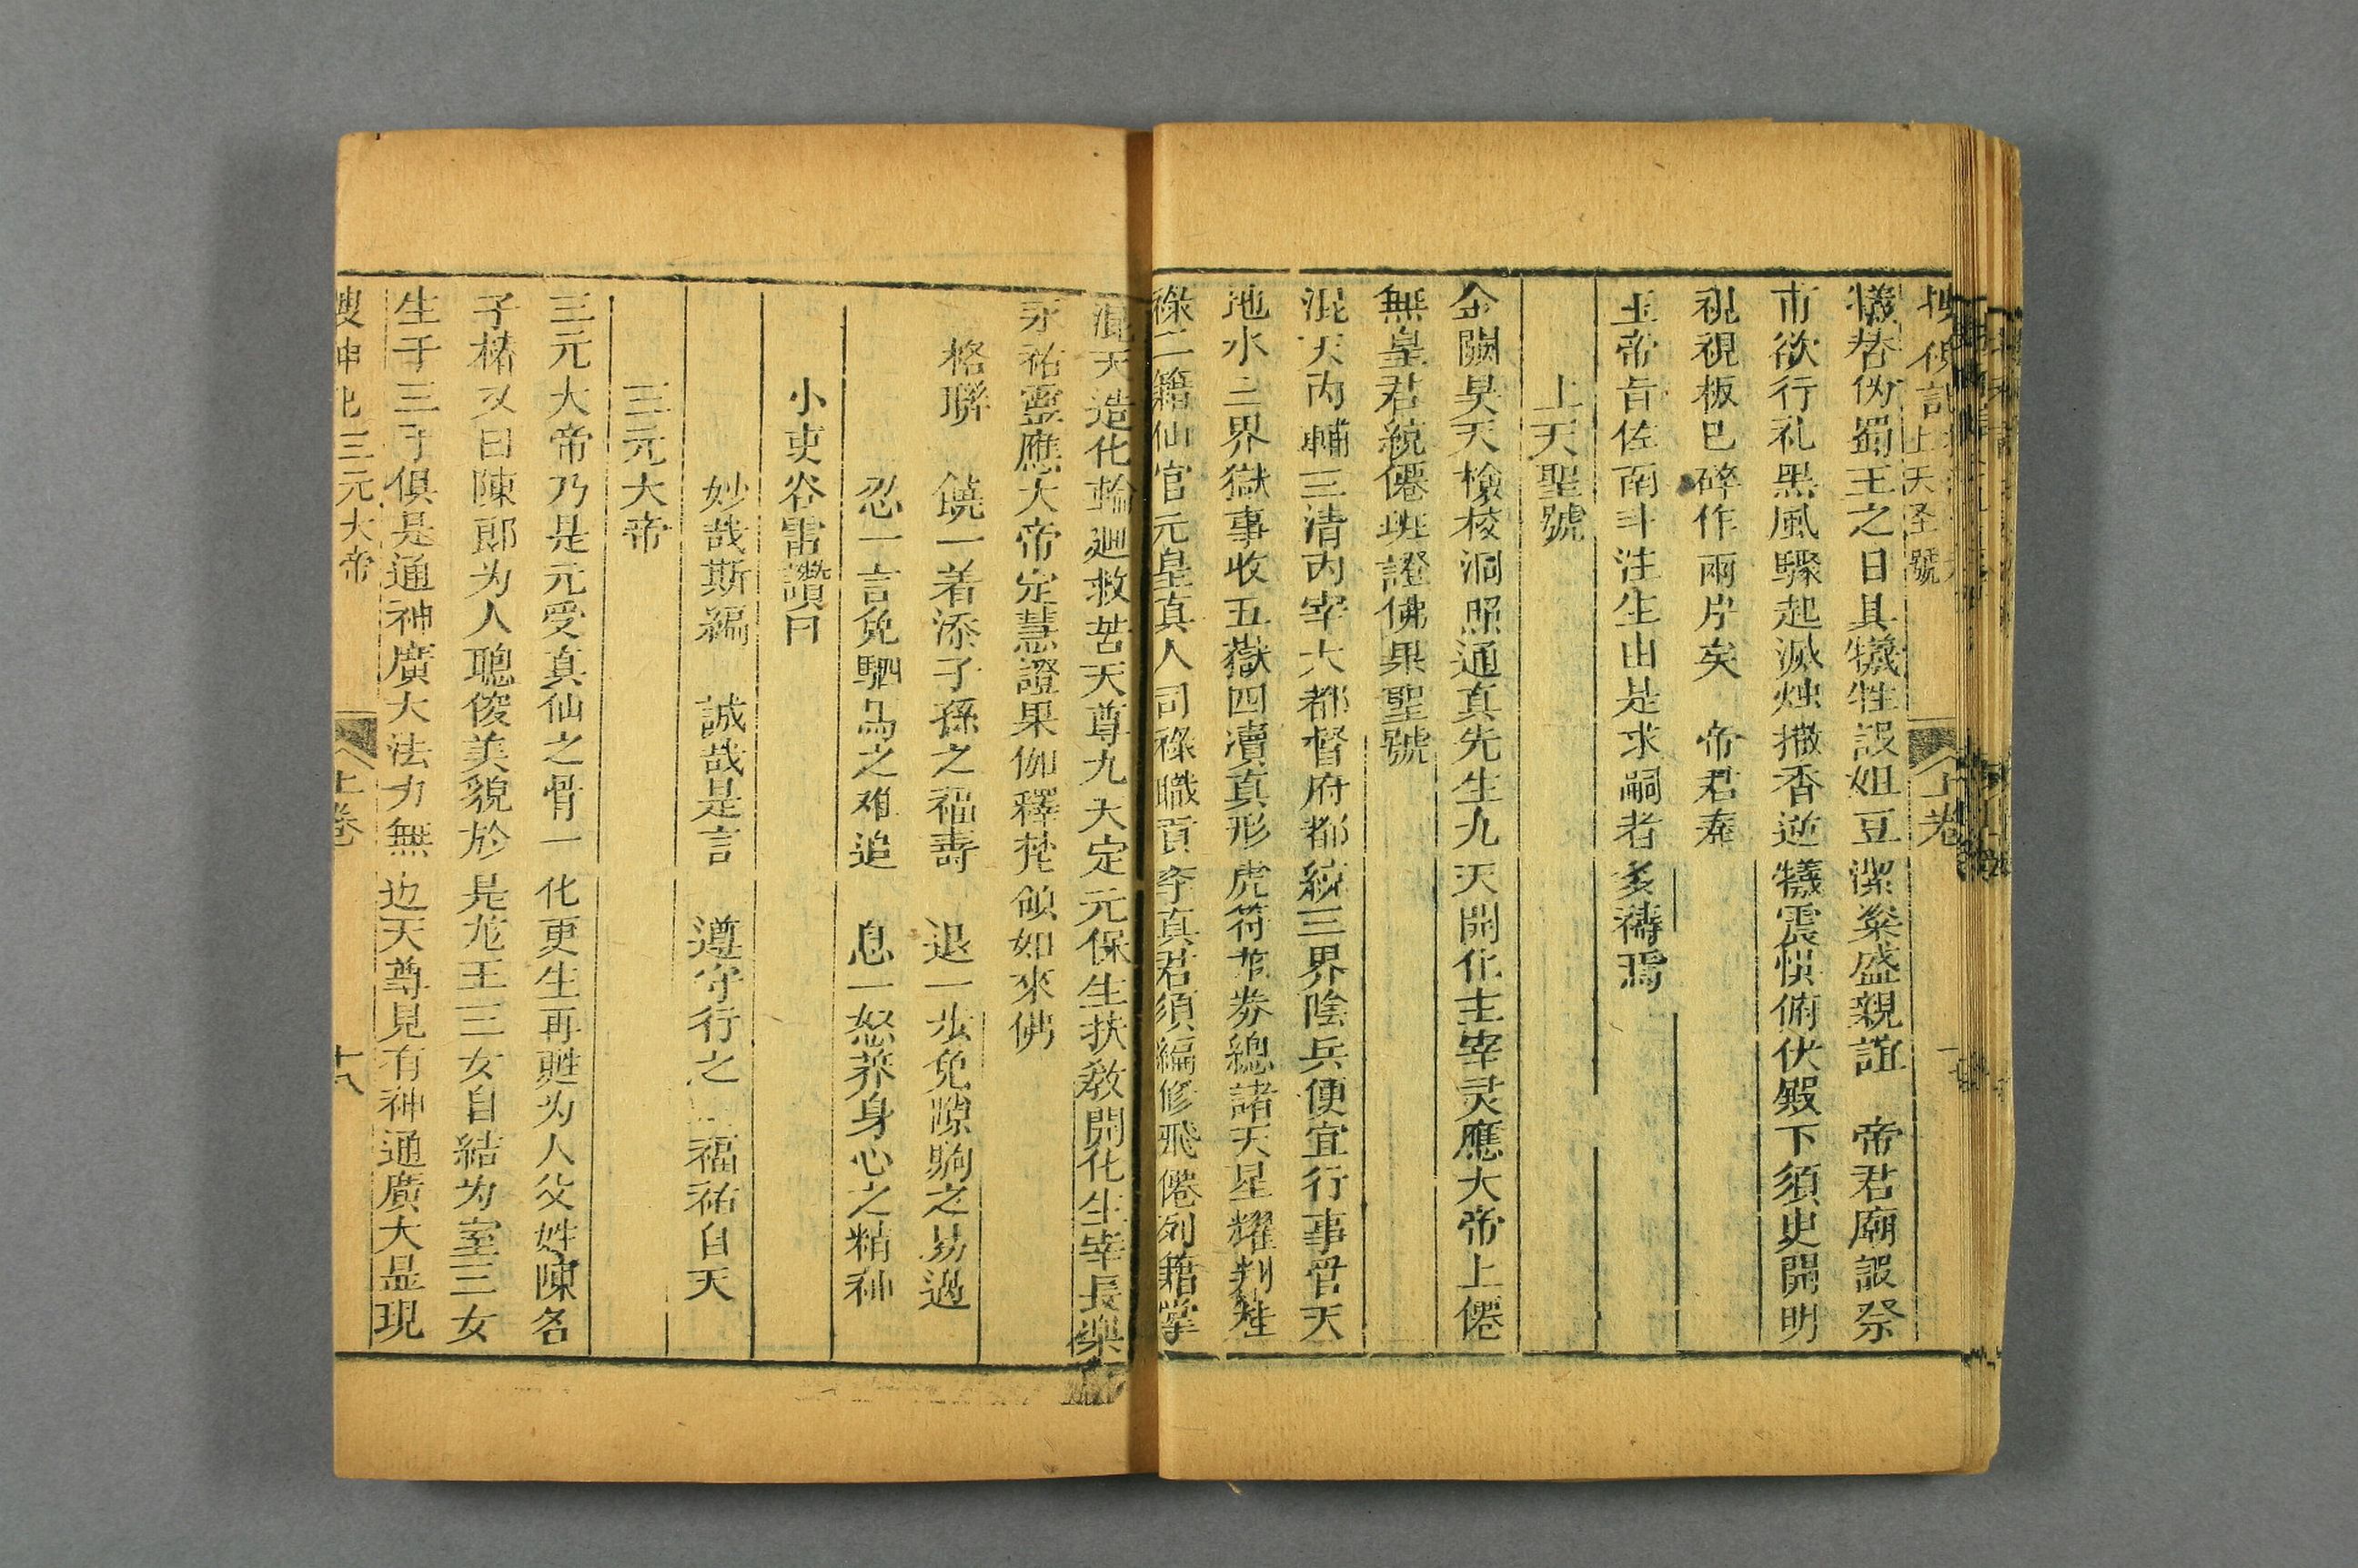 上天圣號 上卷
犧替伪蜀王之日具犧牲設俎豆潔粢盛親詣 帝君廟設祭
市欲行礼黑風驟起滅烛撒香逆犧震惧俯伏殿下須史開明
祝視板已碎作兩片矣 帝君奉
玉帝旨佐南斗注生由是求嗣者多禱焉
上天聖號
金闕昊天檢校洞照通真先生九天開化主宰灵應大帝上僊
無皇君統僊班證佛果聖號
混天内輔三清内宰大都督府都統三界陰兵便宜行事管天
地水三界獄事收五嶽四瀆真形虎符龙券總諸天星耀判桂
祿二籍仙官元皇真人司祿職貢李真君須編修飛僊列籍掌
混天造化輪廻救苦天尊九天定元保生扶教開化生宰長樂
永祐靈應大帝定慧證果伽釋梵領如來佛
格聯 饒一着添子孫之福壽 退一步免隙駒之易過
忍一言免駟馬之难追 息一怒养身心之精神
小吏谷雷讚曰
妙哉斯編 誠哉是言 遵守行之 福祐自天
三元大帝
三元大帝乃是元受真仙之骨一化更生再甦为人父姓陳名
子椿又曰陳郎为人聰俊美貌於是龙王三女自結为室三女
生于三子俱是通神廣大法力無边天尊見有神通廣大显現
搜神记三元大帝 上卷 十八